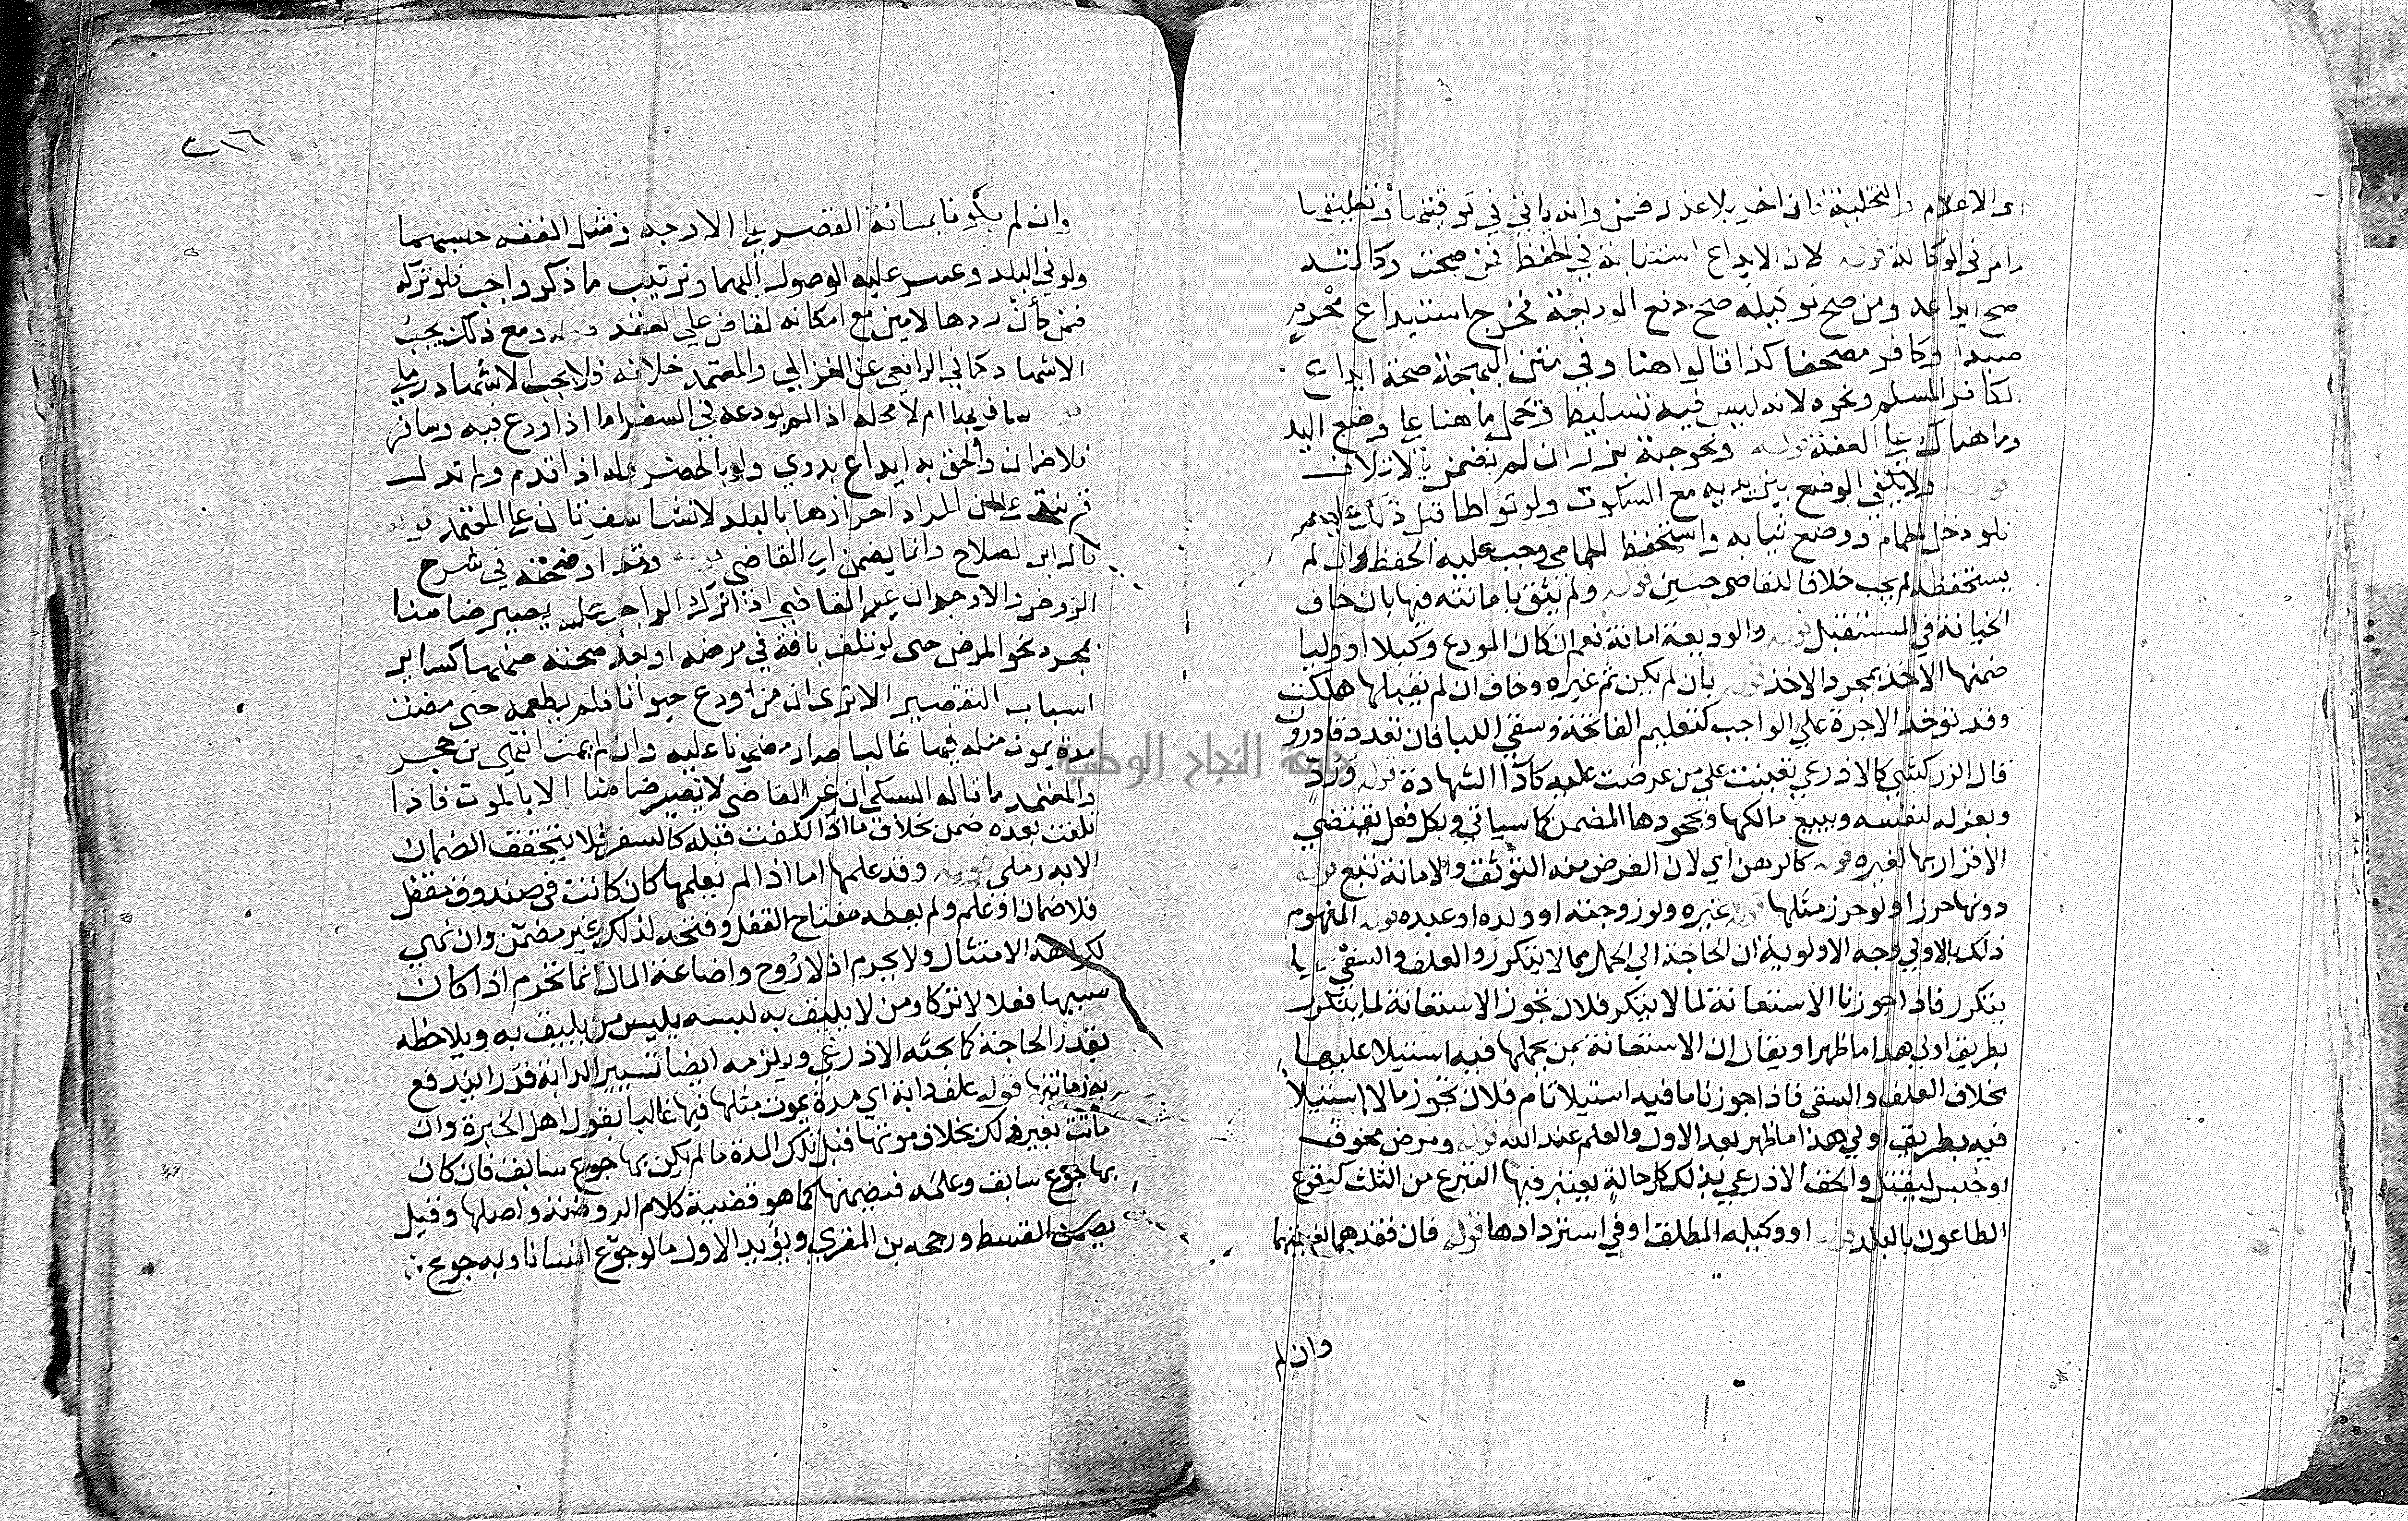 اى الاعلام والتخلية فان اخر بلا عذر ضمن وانه ياتي في توقيتها وتعليقها
ما مر في الوكالة قوله لان الايداع استنابة في الحفظ فمن صحت وكالته
صح ايداعه ومن صح توكيله صح دفع الوديعة فخرج استيداع محرم
صيدا وكافر مصحفا كذا قالوا هنا وفي متن البهجة صحة ايداع
الكافر المسلم ونحوه لانه ليس فيه تسليط فحمل ما هنا على وضع اليد
وما هناك على العقد قوله ونحو جبة بزر ان لم تضمن بالاتلاف
قوله ولا يكفي الوضع بين يديه مع السكوت ولو تواطا قبل ذلك عليه
فلو دخل الحمام ووضع ثيابه واستحفظ الحمامي وجب عليه الحفظ وان لم
يستحفظه لم يجب خلافا للقاضى حسين قوله ولم يثق بامانته فيها بان خاف
الخيانة في المستقبل قوله والوديعة امانة نعم ان كان المودع وكيلا او وليا
ضمنها الآخذ بمجرد الاخذ قوله بان لم يكن ثم غيره وخاف ان لم يقبلها هلكت
وقد تؤخذ الاجرة على الواجب كتعليم الفاتحة وسقي اللبا فان تعدد قادرون
قال الزركشي كالاذرعي تعينت على من عرضت عليه كاداء الشهادة قوله ورد
وبعزله لنفسه وببيع مالكها وبجحودها المضمن كما سياتي وبكل فعل تقتضي
الاقرار بها لغيره قوله كالرهن اي لان الغرض منه التوثق والامانة تتبع قوله
دونها حرزا ولو حرز مثلها قوله غيره ولو زوجته او ولده او عبده قوله المفهوم
ذلك بالاولى وجه الاولوية ان الحاجة الى الحمل مما لا يتكرر والعلف والسقي مما
يتكرر فاذا جوزنا الاستعانة لما لا يتكرر فلان تجوز الاستعانة لما يتكرر
بطريق اولى هذا ما ظهر او يقال ان الاستعانة بمن يحملها فيه استيلا عليها
بخلاف العلف والسقي فاذا جوزنا ما فيه استيلا تام فلان تجوز ما لا استيلا
فيه بطريق اولى هذا ما ظهر بعد الاول والعلم عند الله قوله ومرض مخوف
او حبس ليقتل والحق الاذرعي بذلك كل حالة يعتبر فيها التبرع من الثلث كوقوع
الطاعون بالبلد قوله او وكيله المطلق او في استردادها قوله فان فقدهما لغيبتهما
وان لم
٣١٦
وان لم يكونا بمسافة القصر على الاوجه ومثل الفقد حبسهما
ولو في البلد وعسر عليه الوصول اليهما وترتيب ما ذكر واجب فلو تركه
ضمن كأن ردها لامين مع امكانه لقاض على المعتمد قوله ومع ذلك يجب
الاشهاد كما في الرافعي عن الغزالي والمعتمد خلافه فلا يجب الاشهاد رملي
قوله سافر بها ام لا محله اذا لم يودعه في السفر اما اذا اودع فيه وسافر بها
فلا ضمان والحق به ايداع بدوي ولو بالحضر وله اذا قدم ولم تدل
قرينة على ان المراد احرازها بالبلد لانشا سفر ثان على المعتمد قوله
قاله ابن الصلاح وانما يضمن اي القاضى قوله وقد اوضحته في شرح
الروض والاوجه ان غير القاضي اذا ترك الواجب عليه يصير ضامنا
بمجرد نحو المرض حتى لو تلف بافة في مرضه او بعد صحته ضمنها كساير
اسباب التقصير الا ترى ان من اودع حيوانا فلم يطعمه حتى مضت
مدة يموت مثله فيها غالبا صار مضمونا عليه وان لم يمت انتهى بن حجر
والمعتمد ما قاله السبكي ان غير القاضى لا يصير ضامنا الا بالموت فاذا
تلفت بعده ضمن بخلاف ما اذا تلفت قبله كالسفر فلا يتحقق الضمان
الا به رملي قوله وقد علمها اما اذا لم يعلمها كان كانت في صندوق مقفل
فلا ضمان او علم ولم يعطه مفتاح القفل وفتحه لذلك غير مضمن وان نهي
لكراهة الامتثال ولا يحرم اذ لا روح واضاعة المال انما تحرم اذا كان
سببها فعلا لا تركا ومن لا يليق به لبسه يلبس من يليق به ويلاحظه
بقدر الحاجة كما بحثه الاذرعي ويلزمه ايضا تسيير الدابة قدرا يندفع
به زمانتها قوله علف دابة اي مدة يموت مثلها فيها غالبا بقول اهل الخبرة وان
ماتت بغيره لكن بخلاف موتها قبل تلك المدة ما لم يكن بها جوع سابق فان كان
بها جوع سابق وعلمه فيضمنها كما هو قضية كلام الروضة واصلها وقيل
يضمن القسط ورجحه بن المقري ويؤيد الاول ما لو جوّع انسانا وبه جوع